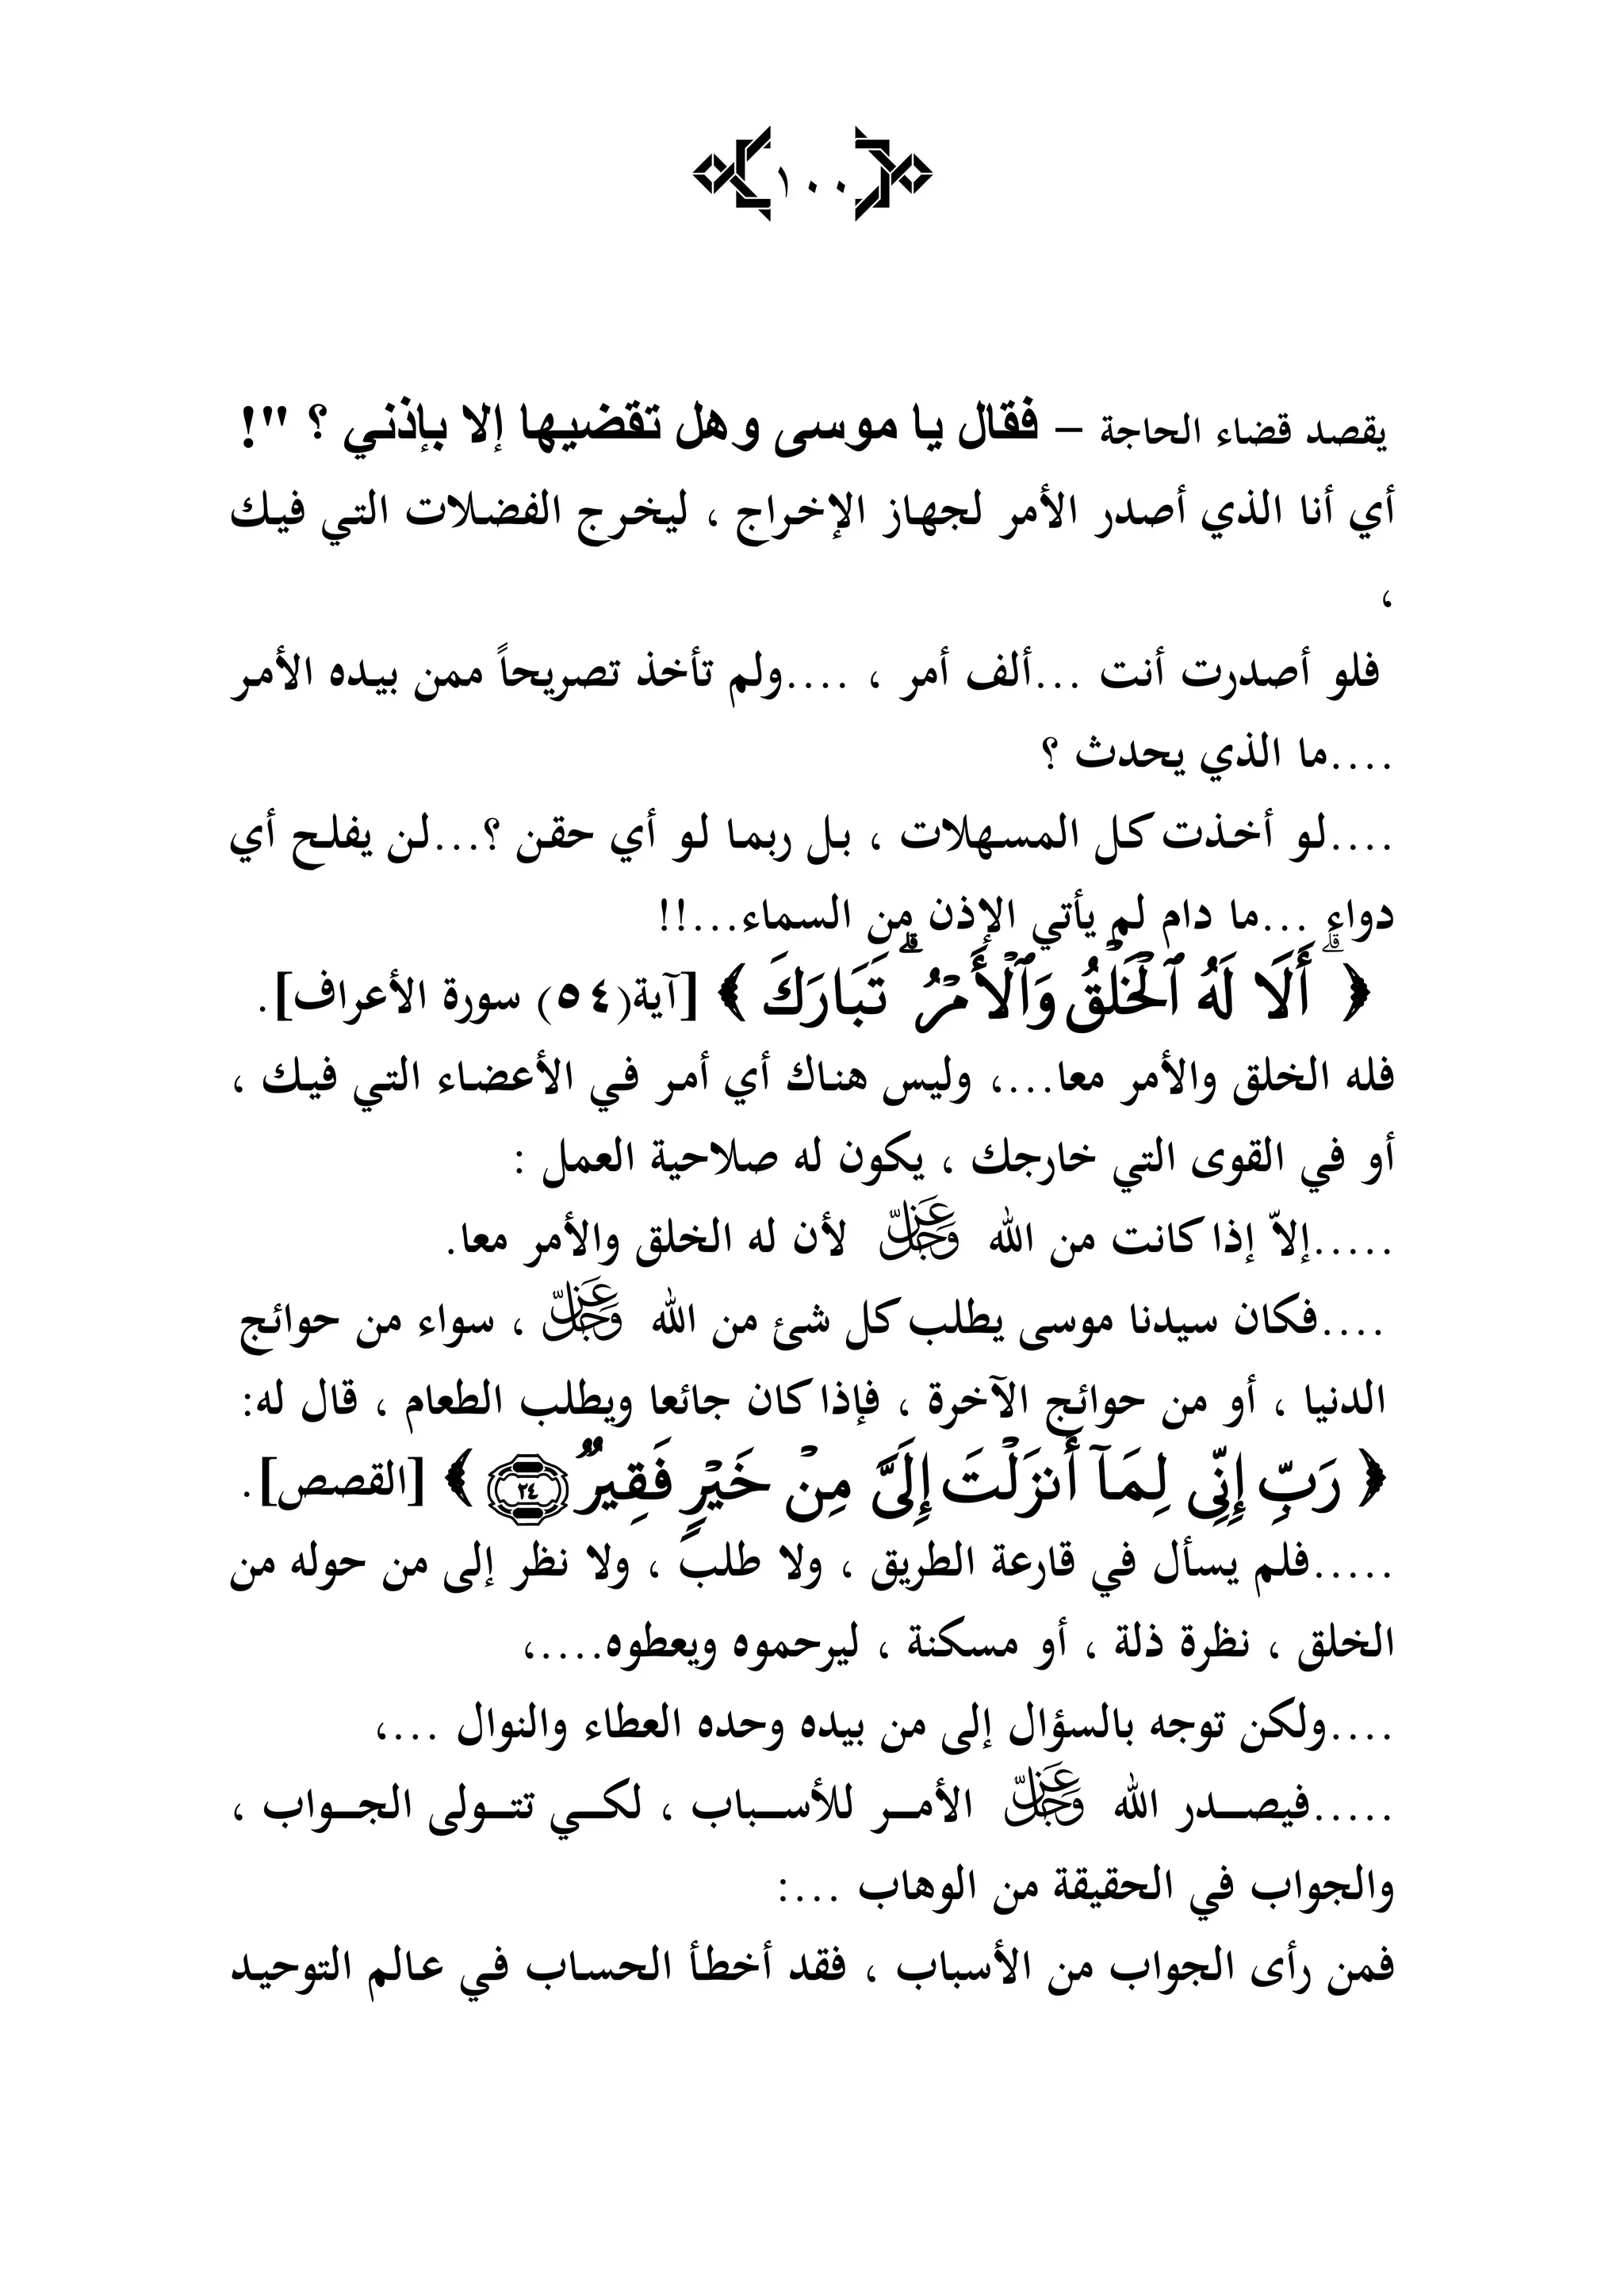 ١٠٠
يقصد قضاء الحاجة – فقال يا موسى وهل تقضيها إلا بإذني ؟ "!
أي أنا الذي أصدر الأمر لجهاز الإخراج ، ليخرج الفضلات التي فيك
،
فلو أصدرت أنت ...ألف أمر ، ....ولم تأخذ تصريحاً ممن بيده الأمر
....ما الذي يحدث ؟
....لو أخذت كل المسهلات ، بل ربما لو أي حقن ؟...لن يفلح أي
دواء ...ما دام لم يأتي الإذن من السماء...!!
﴿ ۗ أَلَا لَهُ ٱلْخَلْقُ وَٱلْأَمْرُ ۗ تَبَارَكَ ﴾ [آية(٥٤) سورة الأعراف].
فله الخلق والأمر معا...، وليس هناك أي أمر في الأعضاء التي فيك ،
أو في القوى التي خارجك ، يكون له صلاحية العمل :
.....إلاّ إذا كانت من الله عَزَّ وَجَلَّ لأن له الخلق والأمر معا.
....فكان سيدنا موسى يطلب كل شئ من الله عَزَّ وَجَلَّ ، سواء من حوائج
الدنيا ، أو من حوائج الآخرة ، فإذا كان جائعا ويطلب الطعام ، قال له:
﴿ رَبِّ إِنِّى لِمَآ أَنزَلْتَ إِلَىَّ مِنْ خَيْرٍ فَقِيرٌ ٢٤ ﴾ [القصص].
.....فلم يسأل في قارعة الطريق ، ولا طلب ، ولا نظر إلى من حوله من
الخلق ، نظرة ذلة ، أو مسكنة ، ليرحموه ويعطوه....،
....ولكن توجه بالسؤال إلى من بيده وحده العطاء والنوال ...،
.....فيصدر الله عَزَّ وَجَلَّ الأمر للأسباب ، لكي تتولى الجواب ،
والجواب في الحقيقة من الوهاب ...:
فمن رأى الجواب من الأسباب ، فقد أخطأ الحساب في عالم التوحيد